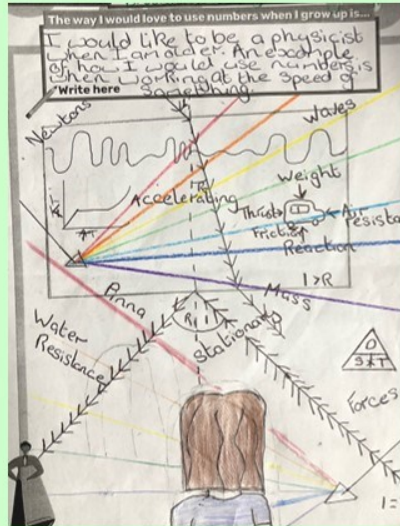 The way I would love to use numbers when I grow up is...
I would like to be a physicist
when I am older. An example
of how I would use numbers is
when working at the speed of
something.
Write here
Newtons
Waves
Accelerating
Weight
Thrust
Air
resista
Friction
Reaction
I>R
Mass
Anna
Water
Resistance
R I
Stationary
D
S×T
Forces
I=